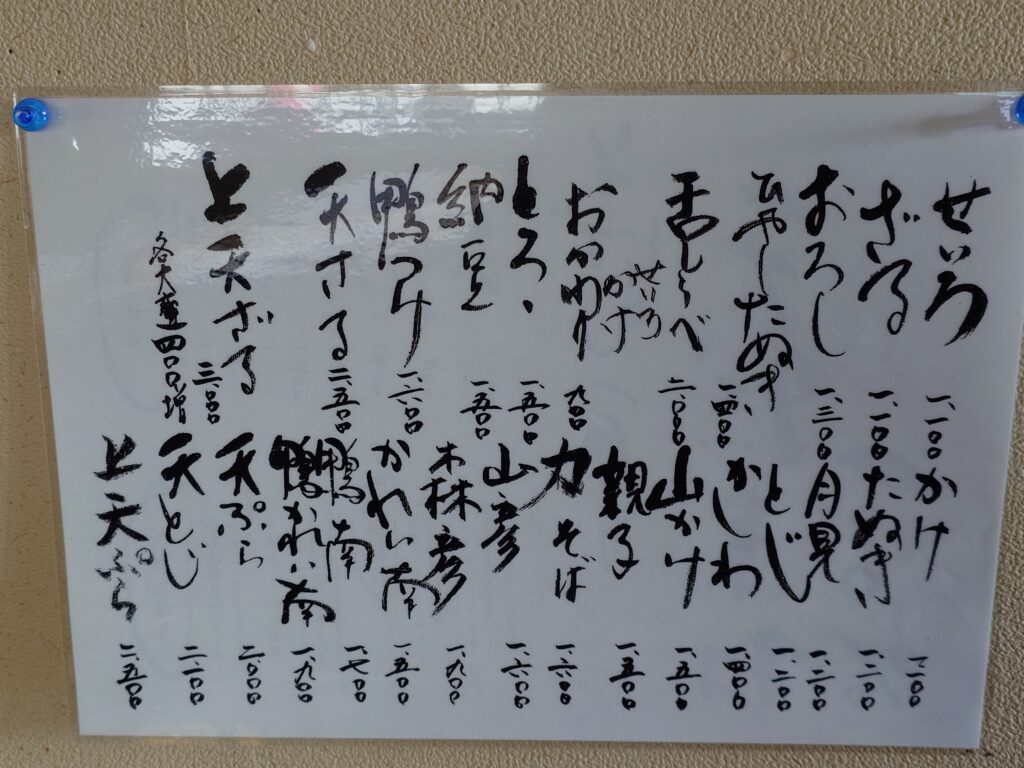 せいろ 一、一〇〇
ざる 一、一〇〇
おろし 一、三〇〇
ひやしたぬき 一、四〇〇
しらべ 二、〇〇〇
おかわり せいろ かけ 九〇〇
とろろ 一、五〇〇
納豆 一、五〇〇
鴨つけ
天ざる 二、五〇〇
上天ざる 三、〇〇〇
各大盛四〇〇増
かけ 一、一〇〇
たぬき 一、二〇〇
月見 一、二〇〇
とじ 一、二〇〇
かしわ 一、四〇〇
山かけ 一、五〇〇
親子 一、五〇〇
力そば 一、六〇〇
山彦 一、六〇〇
森彦 一、九〇〇
かれい南 一、五〇〇
鴨南 一、七〇〇
鴨かれい南 一、九〇〇
天ぷら 二、〇〇〇
天とじ 二、一〇〇
上天ぷら 二、五〇〇